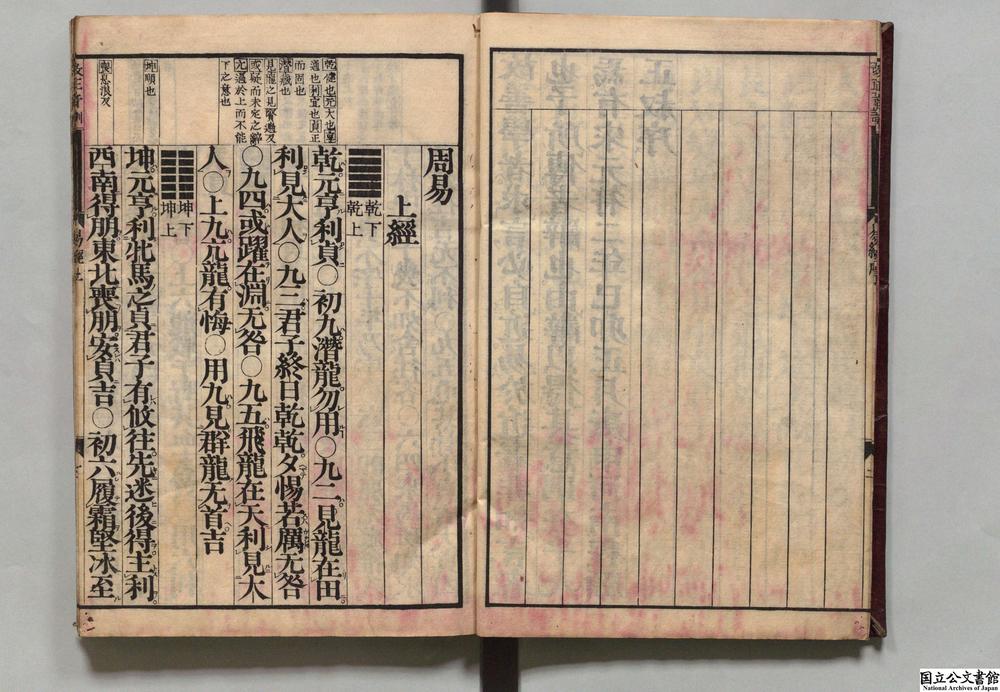 乾健也元大也亨
通也利宜也貞正
而固也
潛藏也
見龍之見賢遍反
或疑而未定之辭
亢過於上而不能
下之意也
坤順也
喪息浪反
周易
上經
䷀ 乾下
乾上
乾元亨利貞○初九潛龍勿用○九二見龍在田
利見大人○九三君子終日乾乾夕惕若厲无咎
○九四或躍在淵无咎○九五飛龍在天利見大
人○上九亢龍有悔○用九見群龍无首吉
䷁ 坤下
坤上
坤元亨利牝馬之貞君子有攸往先迷後得主利
西南得朋東北喪朋安貞吉○初六履霜堅冰至
改正音訓
易經上
国立公文書館
National Archives of Japan